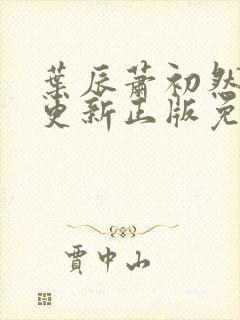 葉辰蕭初然
更新正版免
賈中山